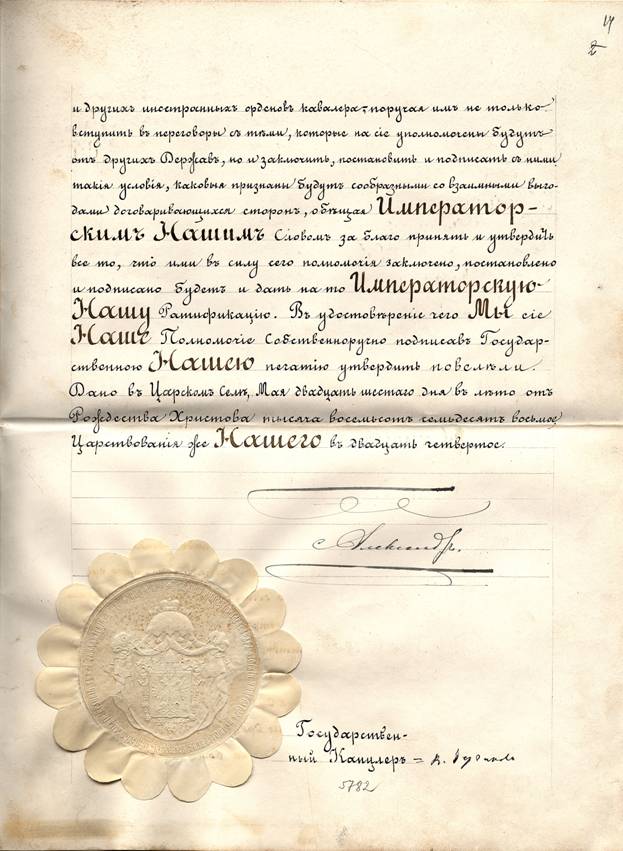 4
2
и другихъ иностранныхъ орденовъ кавалера, поручая имъ не только
вступить въ переговоры съ тѣми, которые на сіе уполномочены будутъ
отъ другихъ Державъ, но и заключить, постановить и подписать съ ними
такія условія, каковыя признаны будутъ сообразными со взаимными выго-
дами договаривающихся сторонъ, обѣщая Император-
скимъ Нашимъ Словомъ за благо принять и утвердить
все то, что ими въ силу сего полномочія заключено, постановлено
и подписано будетъ и дать на то Императорскую
Нашу Ратификацію. Въ удостовѣреніе чего Мы сіе
Наше Полномочіе Собственноручно подписавъ Государ-
ственною Нашею печатію утвердить повелѣли.
Дано въ Царскомъ Селѣ, Мая двадцать шестаго дня въ лѣто отъ
Рождества Христова тысяча восемьсотъ семьдесятъ восьмое,
Царствованія же Нашего въ двадцать четвертое.
Александръ.
Государствен-
ный Канцлеръ = к. Горчаковъ
5782